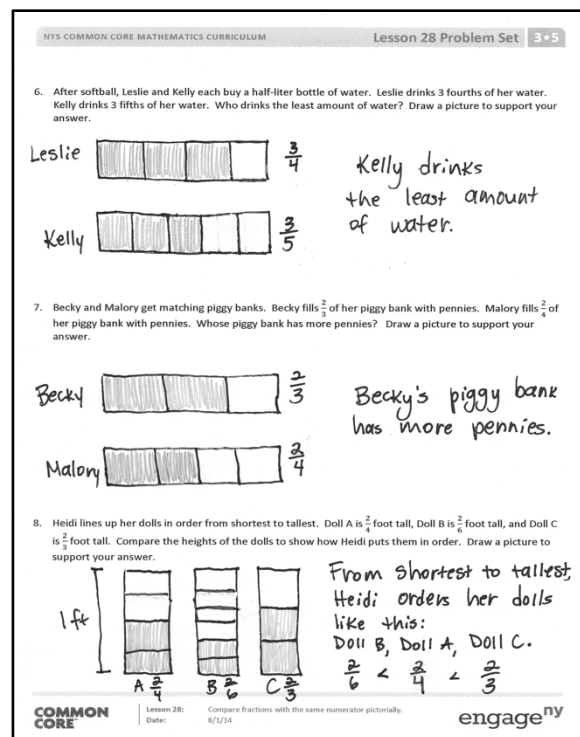 NYS COMMON CORE MATHEMATICS CURRICULUM Lesson 28 Problem Set 3•5
6. After softball, Leslie and Kelly each buy a half-liter bottle of water. Leslie drinks 3 fourths of her water.
Kelly drinks 3 fifths of her water. Who drinks the least amount of water? Draw a picture to support your
answer.
Leslie 3/4
Kelly 3/5
Kelly drinks
the least amount
of water.
7. Becky and Malory get matching piggy banks. Becky fills 2/3 of her piggy bank with pennies. Malory fills 2/4 of
her piggy bank with pennies. Whose piggy bank has more pennies? Draw a picture to support your
answer.
Becky 2/3
Malory 2/4
Becky's piggy bank
has more pennies.
8. Heidi lines up her dolls in order from shortest to tallest. Doll A is 2/4 foot tall, Doll B is 2/6 foot tall, and Doll C
is 2/3 foot tall. Compare the heights of the dolls to show how Heidi puts them in order. Draw a picture to
support your answer.
1 ft
A 2/4 B 2/6 C 2/3
From shortest to tallest,
Heidi orders her dolls
like this:
Doll B, Doll A, Doll C.
2/6 < 2/4 < 2/3
COMMON
CORE
Lesson 28: Compare fractions with the same numerator pictorially.
Date: 8/1/14
engage ny